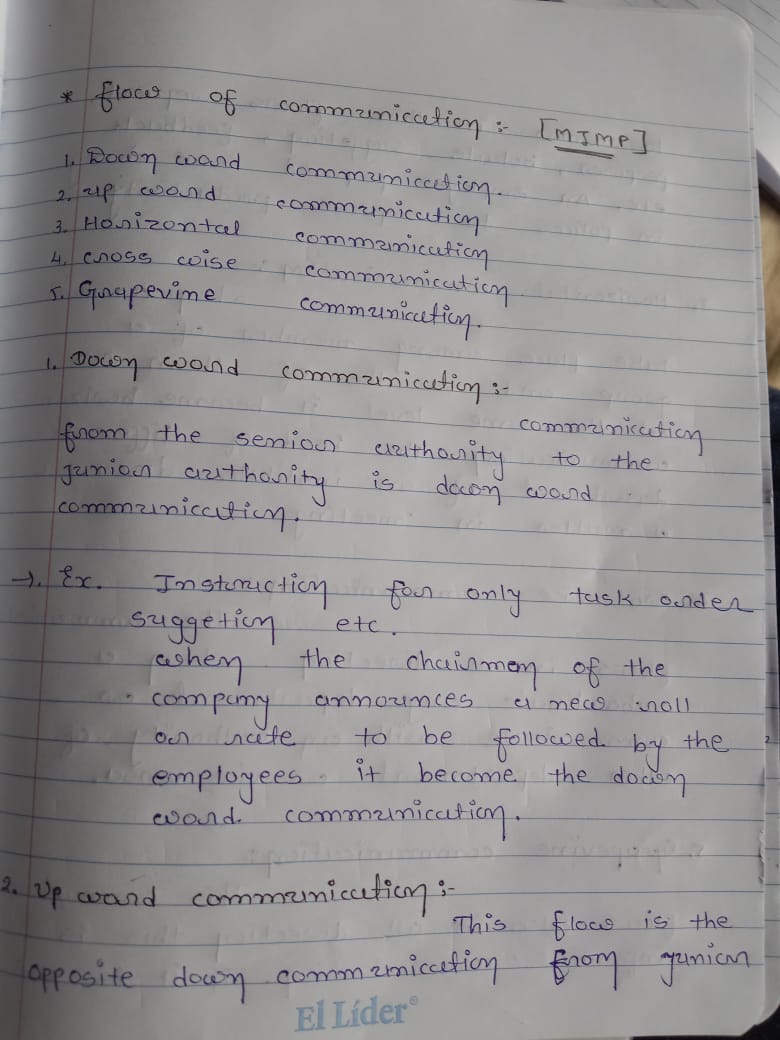 * flow of communication :- [MIMP]
1. Down ward communication.
2. up ward communication
3. Horizontal communication
4. cross wise communication
5. Grapevine communication.
1. Down ward communication :-
communication
from the senior authority to the
junior authority is down ward
communication.
→. Ex. Instruction for only task order
suggetion etc.
when the chairmen of the
company announces a new roll
or rate to be followed by the
employees. it become the down
ward. communication.
2. Up ward communication :-
This flow is the
opposite down communication from junior
El Líder®